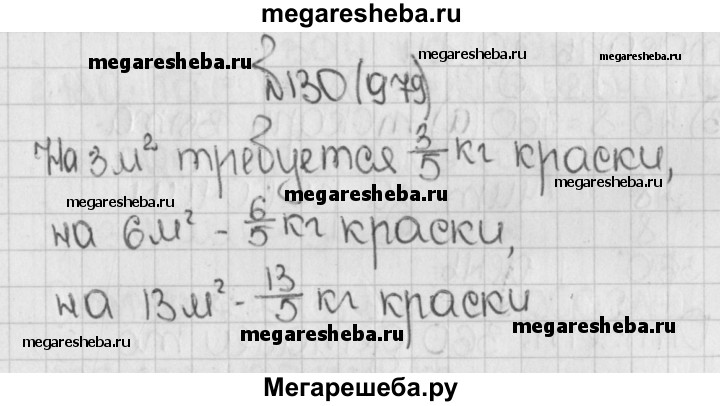 megaresheba.ru
megaresheba.ru megaresheba.ru megaresheba.ru
№130 (979)
На 3 м² требуется 3/5 кг краски,
megaresheba.ru megaresheba.ru
на 6 м² - 6/5 кг краски,
на 13 м² - 13/5 кг краски
megaresheba.ru megaresheba.ru megaresheba.ru
Мегарешеба.ру